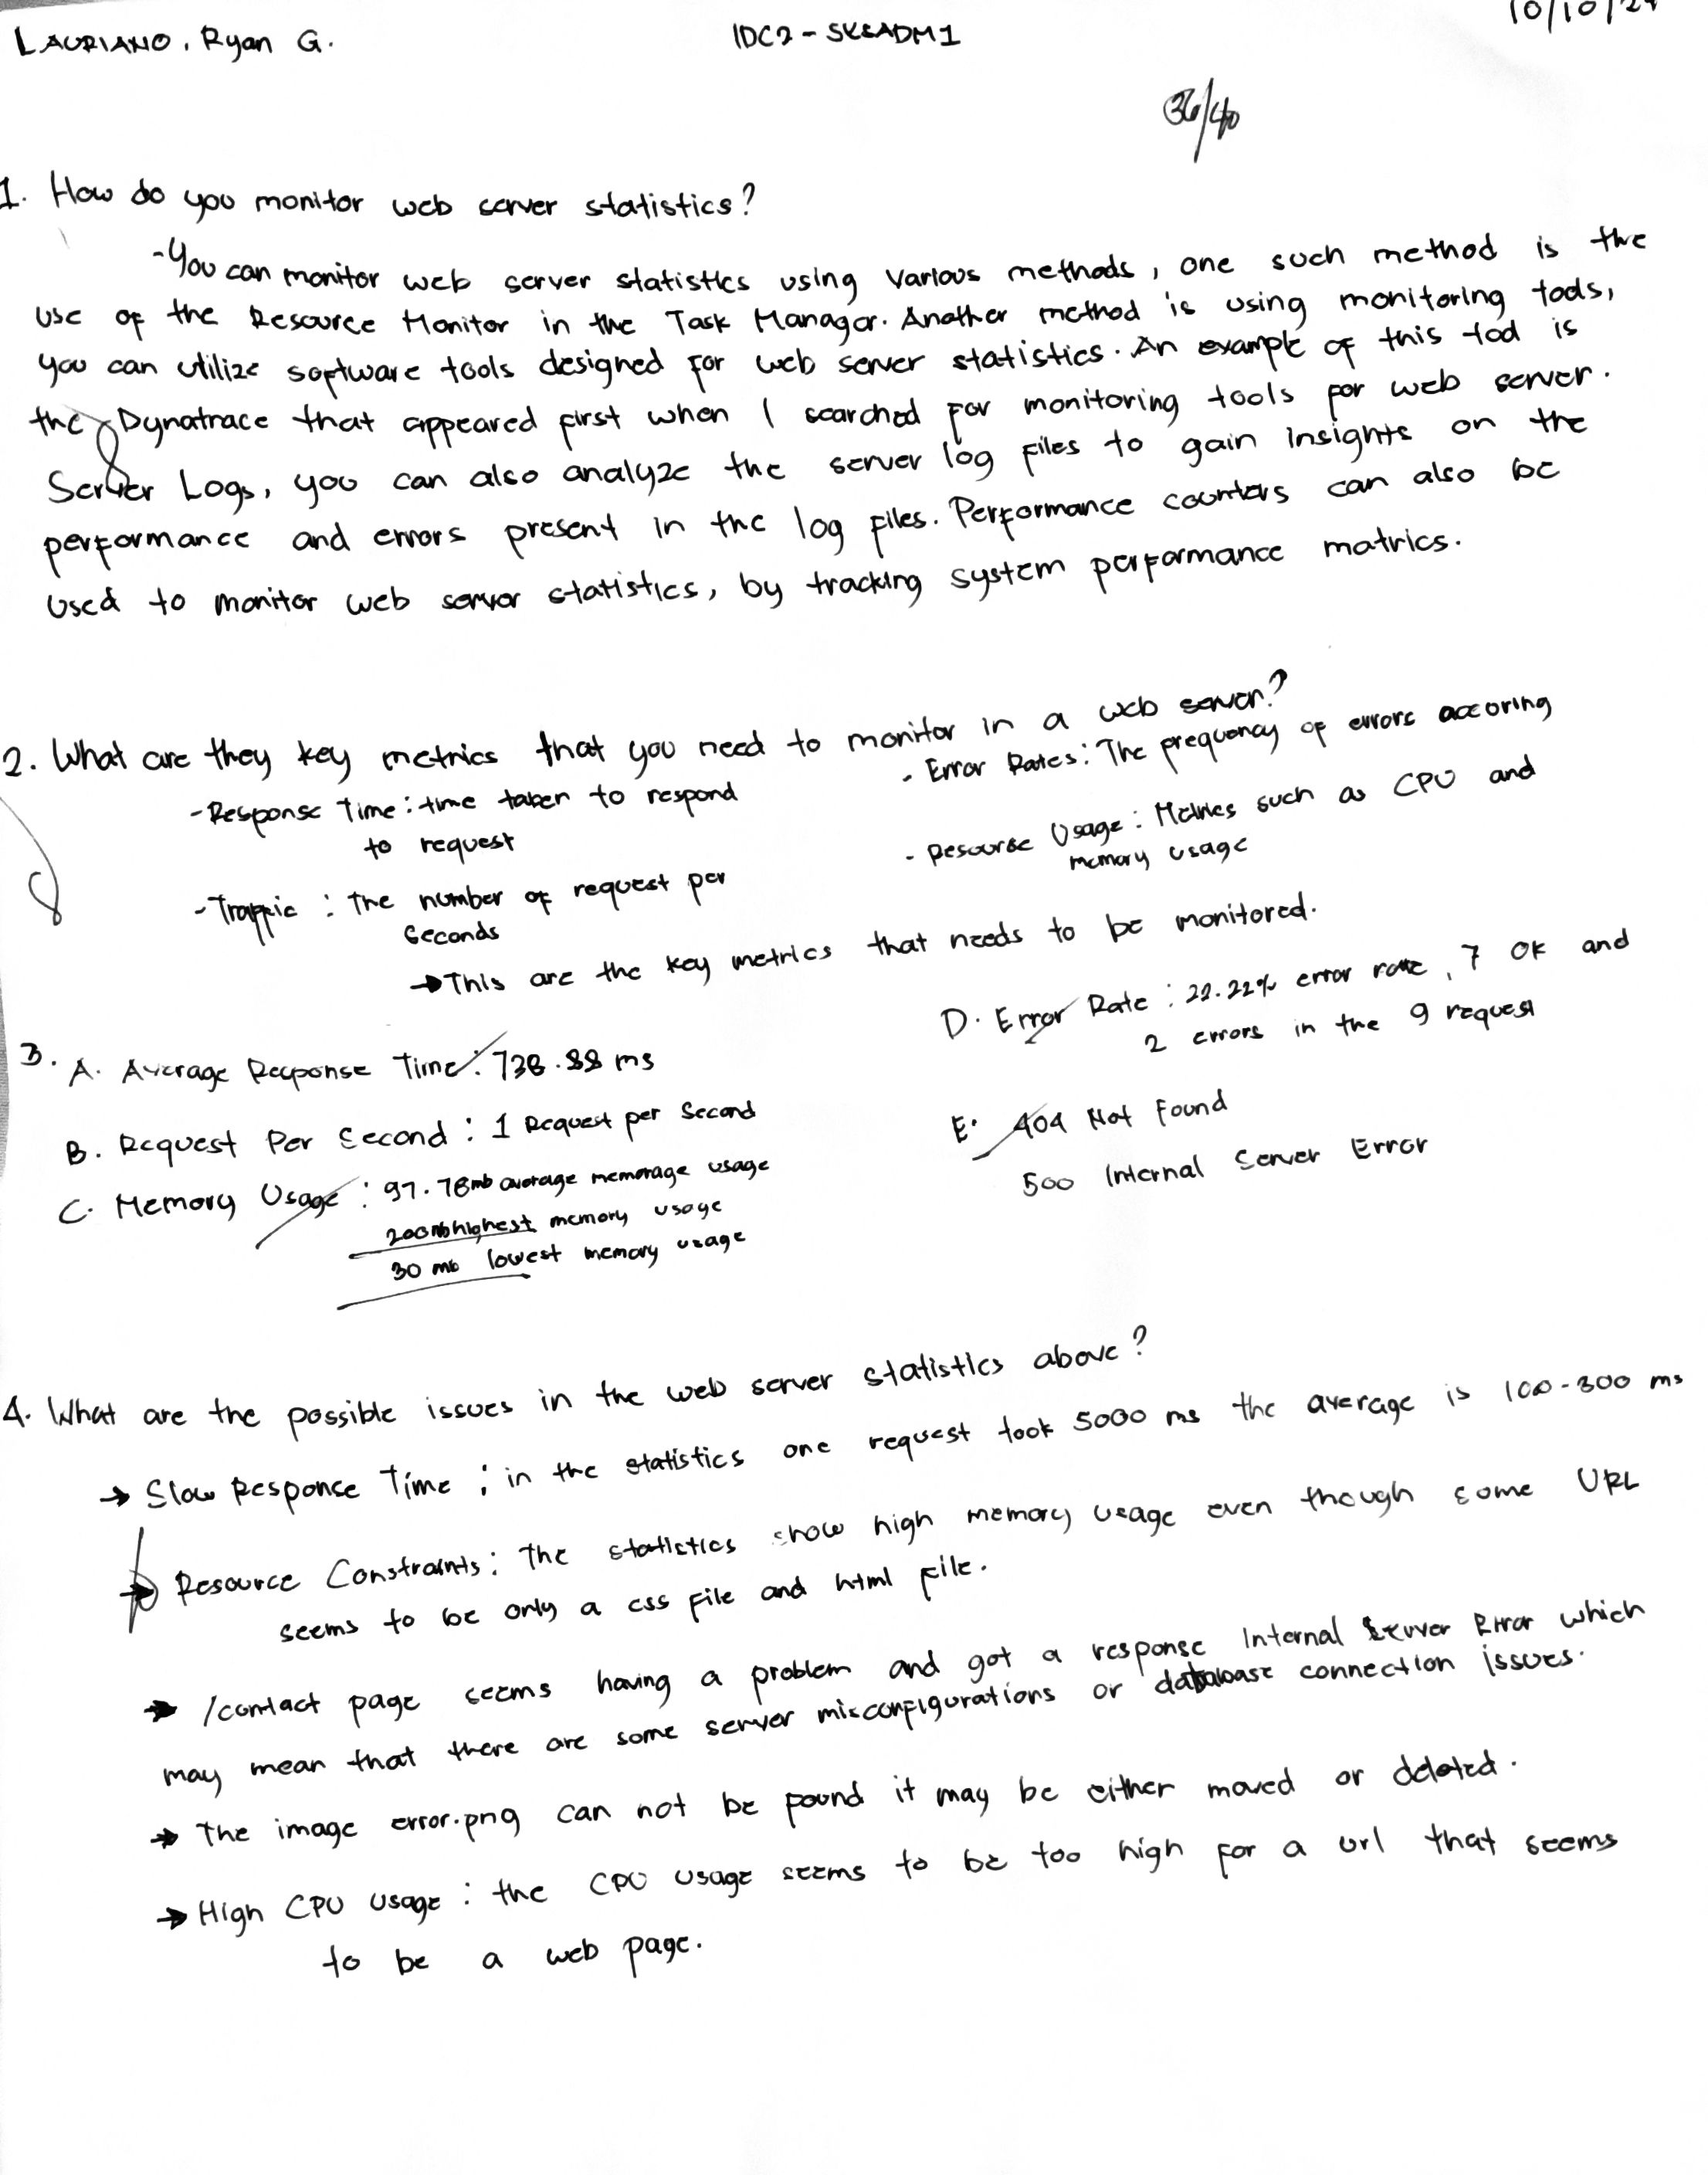 LAURIANO, Ryan G. IDC2 - SYSADM1 10/10/24
36/40
1. How do you monitor web server statistics?
-You can monitor web server statistics using various methods, one such method is the
use of the Resource Monitor in the Task Manager. Another method is using monitoring tools,
you can utilize software tools designed for web server statistics. An example of this tool is
the Dynatrace that appeared first when I searched for monitoring tools for web server.
Server Logs, you can also analyze the server log files to gain insights on the
performance and errors present in the log files. Performance counters can also be
used to monitor web server statistics, by tracking system performance matrics.
8
2. What are they key metrics that you need to monitor in a web server?
-Response Time: time taken to respond
to request
-Traffic : the number of request per
seconds
- Error Rates: The frequency of errors accoring
- Resourse Usage: Metrics such as CPU and
memory usage
→This are the key metrics that needs to be monitored.
8
3. A. Average Response Time: 738.88 ms
B. Request Per Second : 1 Request per Second
C. Memory Usage : 97.78mb average memorage usage
200mb highest memory usage
30 mb lowest memory usage
D. Error Rate : 22.22% error rate, 7 OK and
2 errors in the 9 request
E. 404 Not Found
500 Internal Server Error
4. What are the possible issues in the web server statistics above?
→ Slow Response Time ; in the statistics one request took 5000 ms the average is 100-300 ms
→ Resource Constraints: The statistics show high memory usage even though some URL
seems to be only a css file and html file.
→ /contact page seems having a problem and got a response Internal Server Error which
may mean that there are some server misconfigurations or database connection issues.
→ The image error.png can not be found it may be either moved or deleted.
→ High CPU usage : the CPU usage seems to be too high for a url that seems
to be a web page.